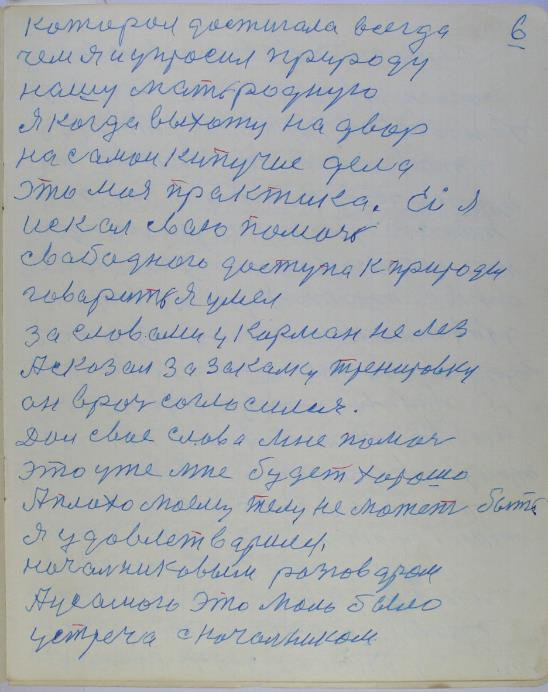 которои достигала всегда 6
чем я и упросил природу
нашу мать родную
я когда выхожу на двор
на самои кипучие дела
это моя практика. Ей я
искал сваю помочь
свабодного доступа к природи
говарить я умел
за словами у карман не лез
А сказал за закалку тренировку
он врач согласился.
Дои свое слова мне помоч
это уже мне будет хорошо
А плохо моему телу не может быть
я удовлетварили,
началниковым разговаром
А у самого это моль было
устреча с началником